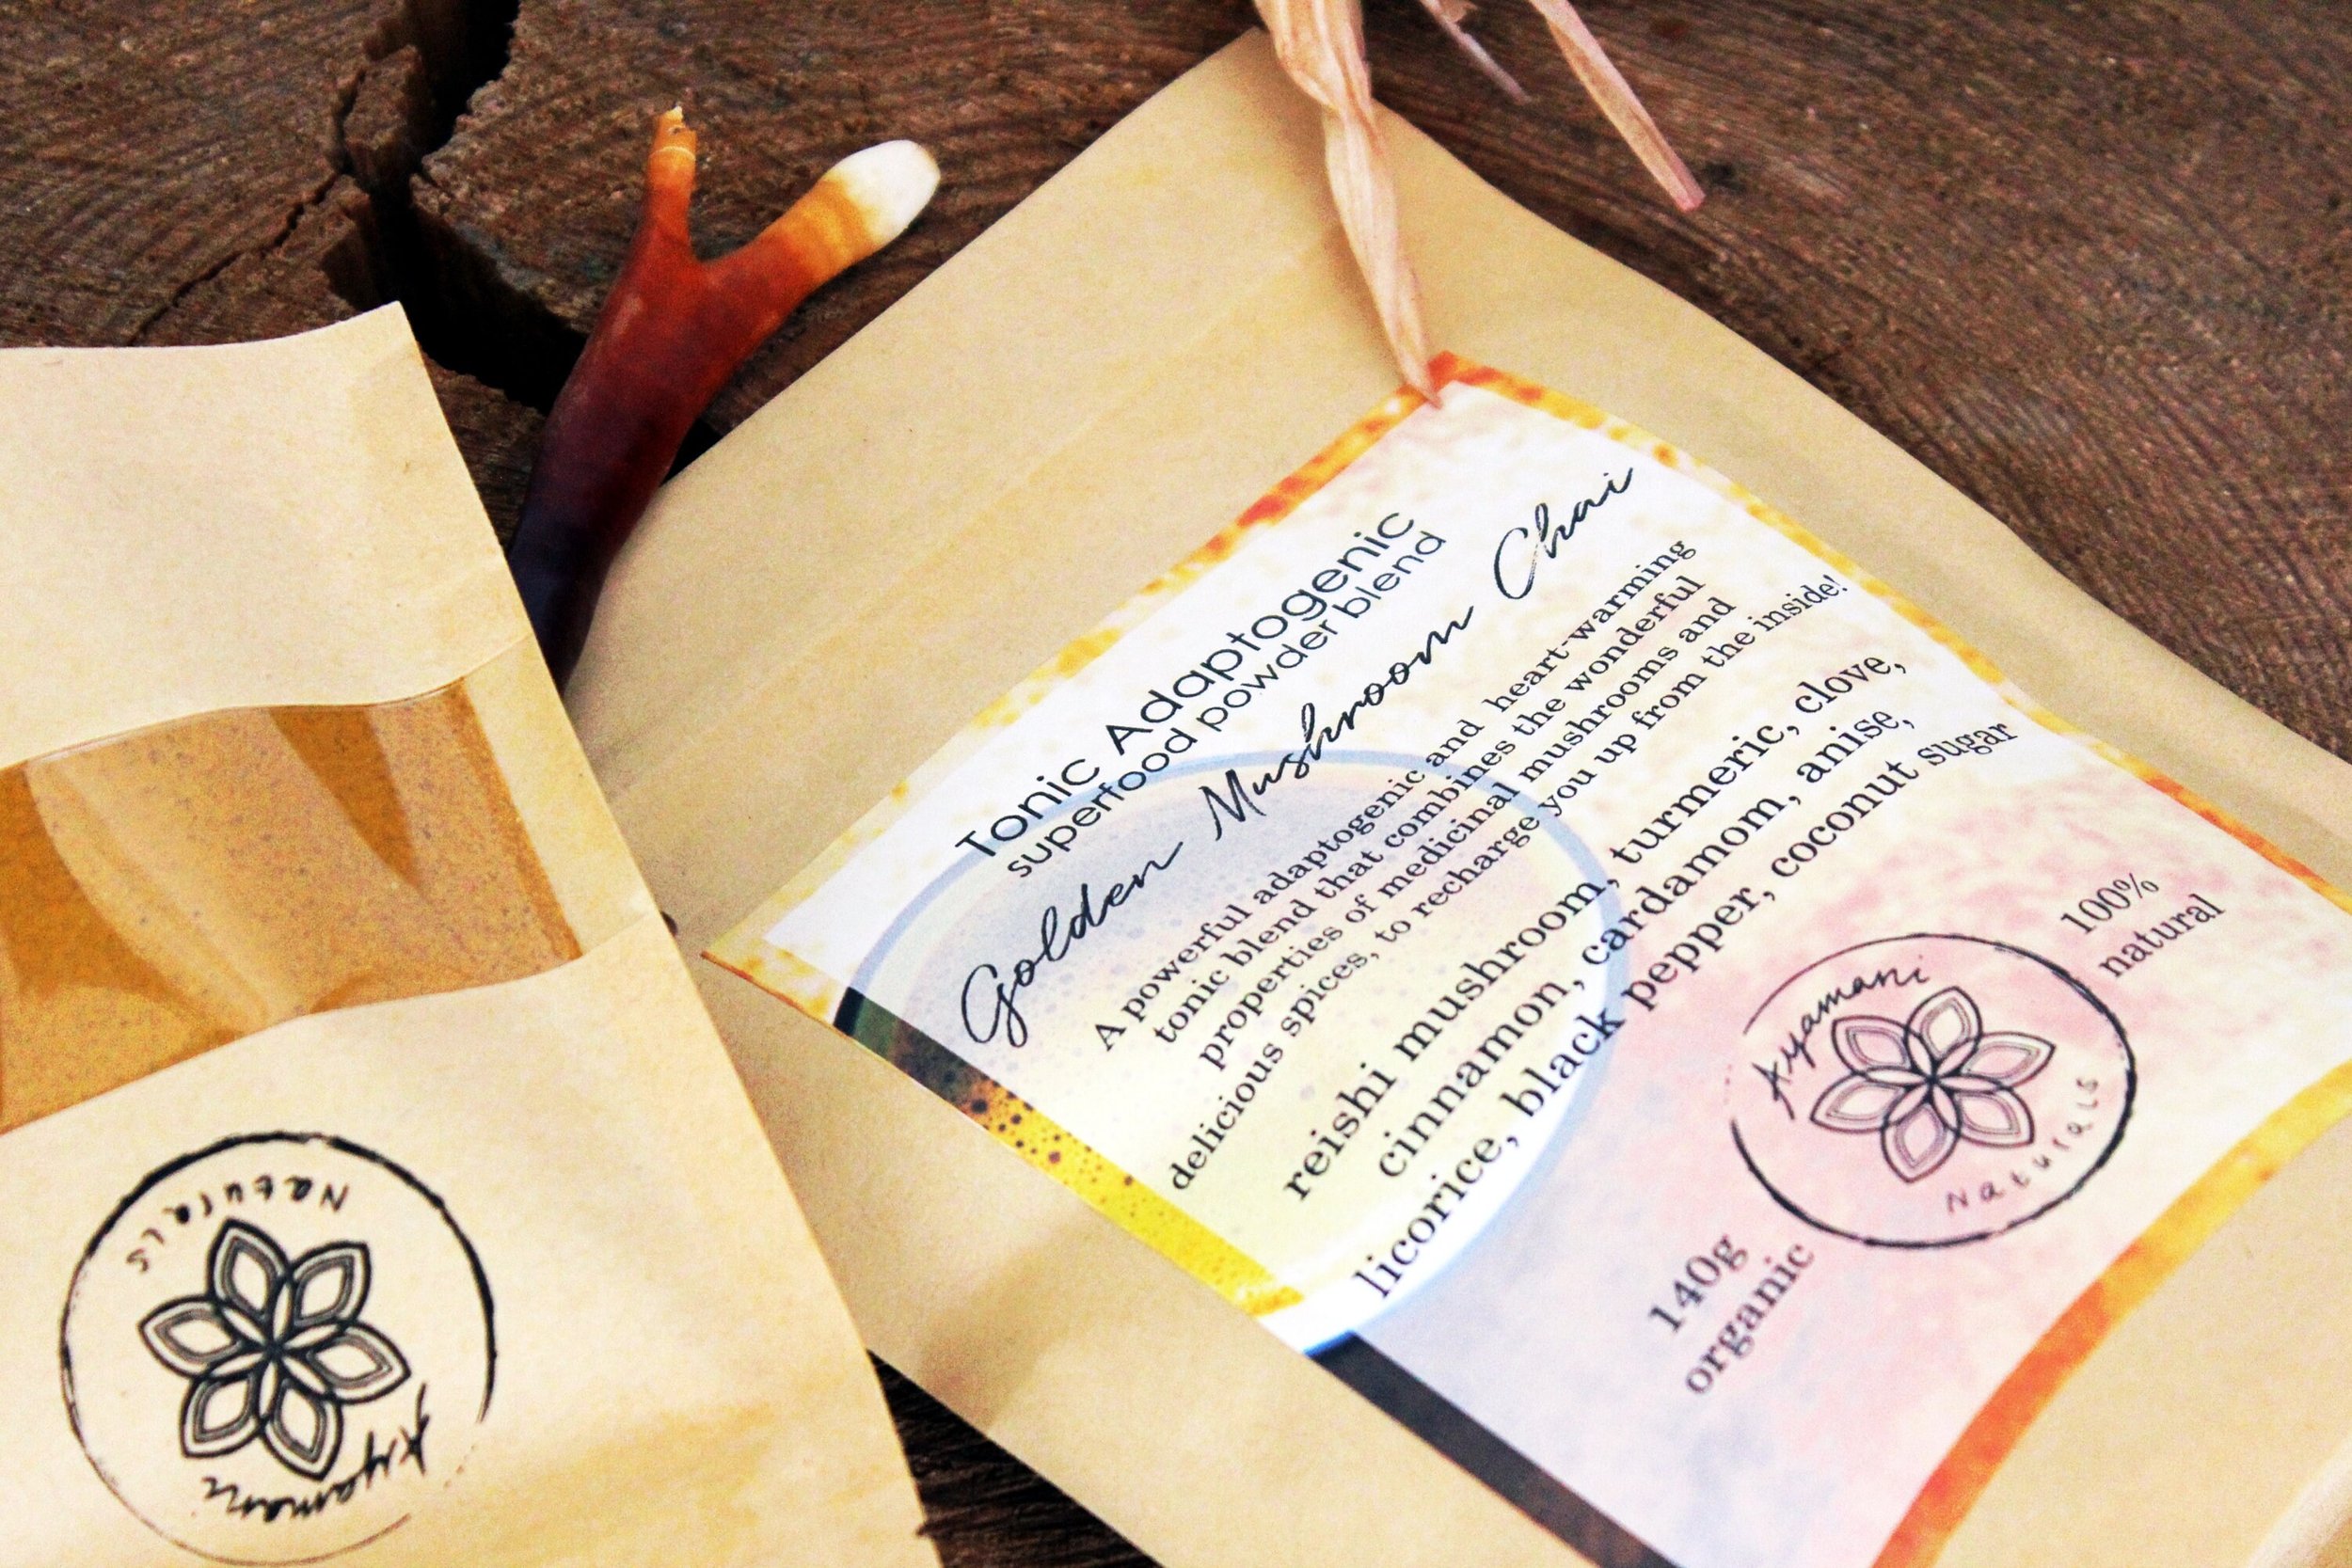 Tonic Adaptogenic
superfood powder blend
Golden Mushroom Chai
A powerful adaptogenic and heart-warming
tonic blend that combines the wonderful
properties of medicinal mushrooms and
delicious spices, to recharge you up from the inside!
reishi mushroom, turmeric, clove,
cinnamon, cardamom, anise,
licorice, black pepper, coconut sugar
140g
organic
Ayamani
Naturals
100%
natural
Ayamani
Naturals